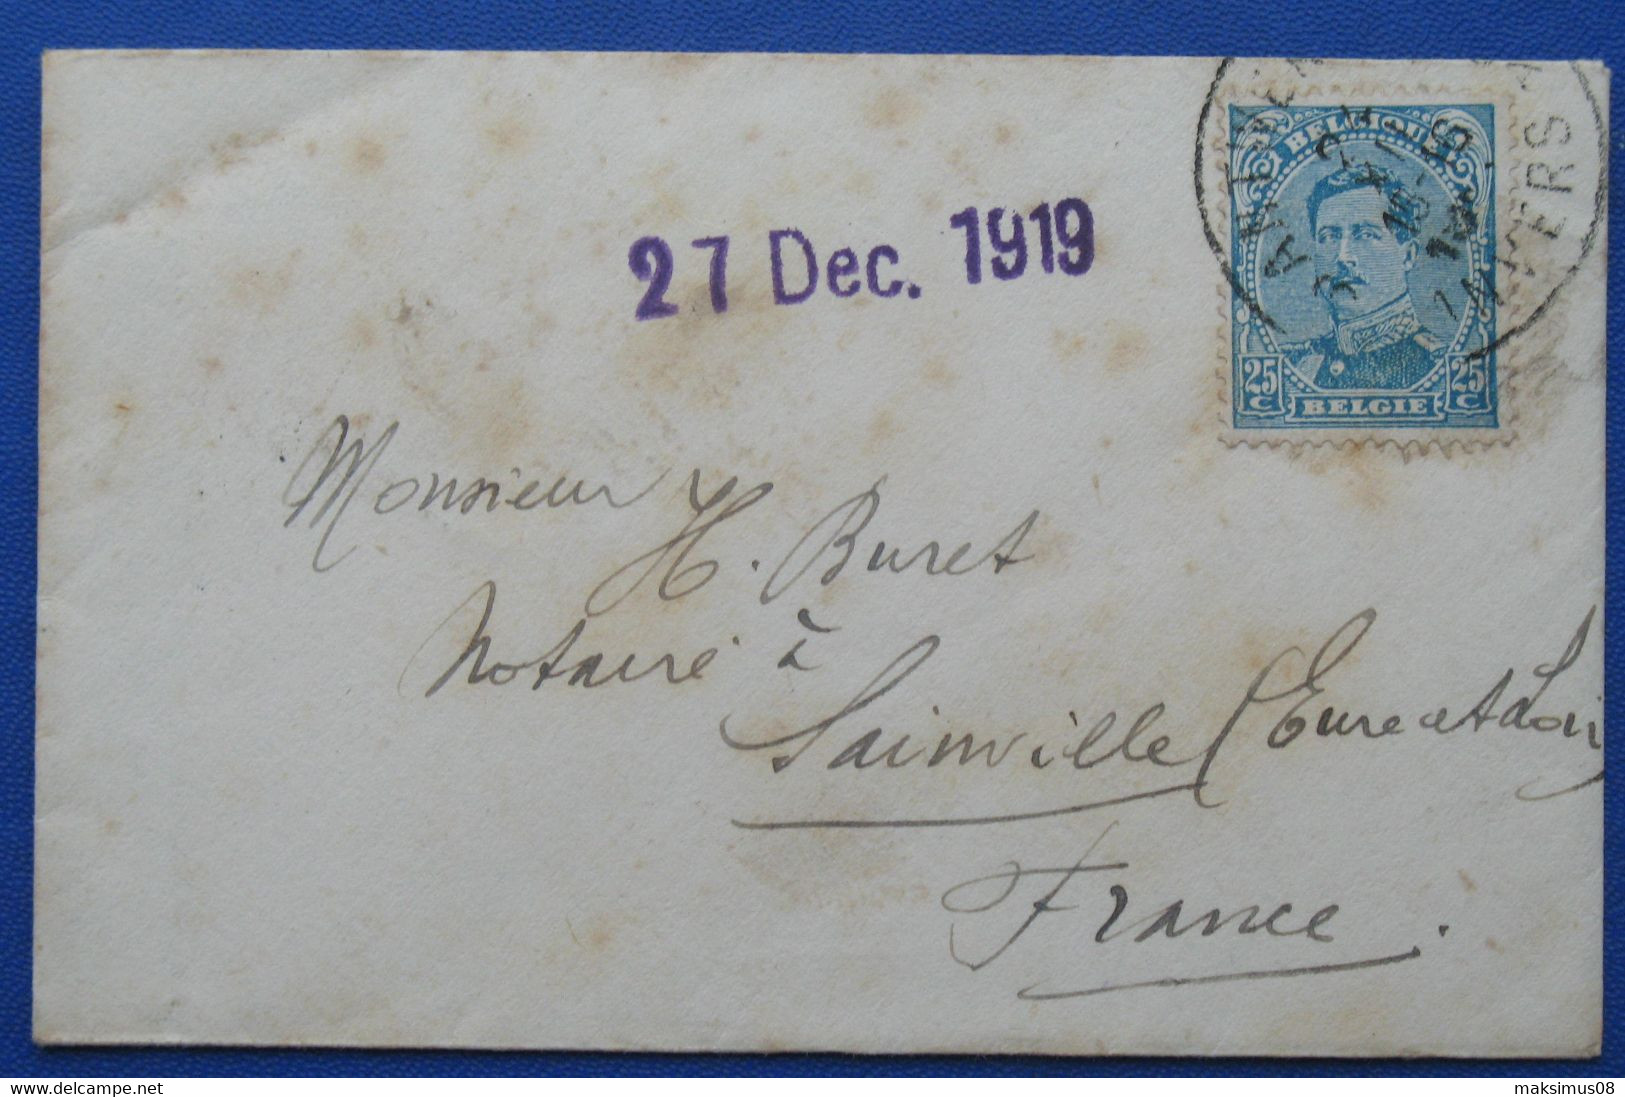 27 Dec. 1919
BELGIQUE
25 C
25 C
BELGIE
ANVERS
Monsieur
H. Buret
Notaire à
Sainville (Eure et Loir
France.
delcampe.net
maksimus08